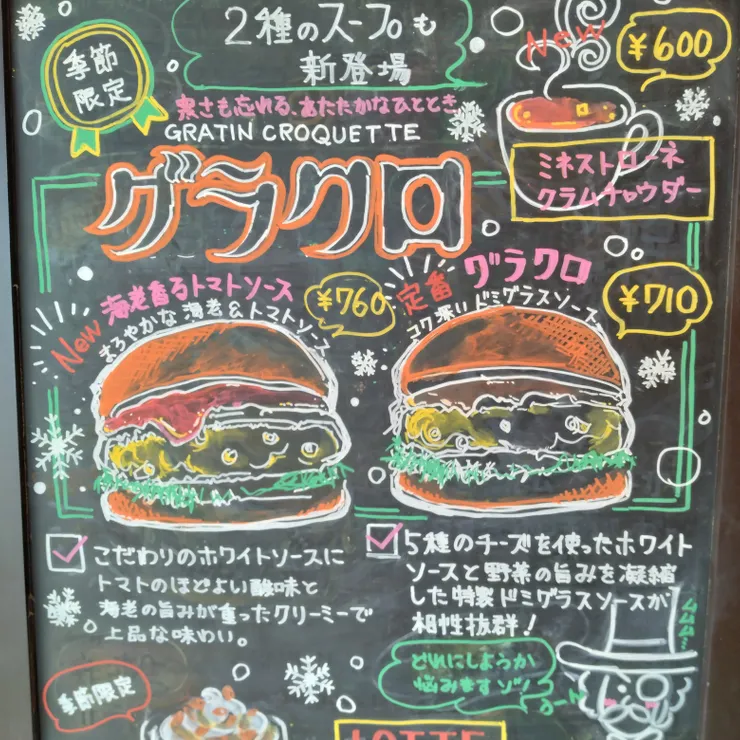 季節
限定
2種のスープも
新登場
New
¥600
寒さも忘れる、あたたかなひととき
GRATIN CROQUETTE
グラクロ
ミネストローネ
クラムチャウダー
New 海老香るトマトソース
まろやかな海老&トマトソース
¥760
定番 グラクロ
コク深いドミグラスソース
¥710
こだわりのホワイトソースに
トマトのほどよい酸味と
海老の旨みが重ったクリーミーで
上品な味わい。
5種のチーズを使ったホワイト
ソースと野菜の旨みを凝縮
した特製ドミグラスソースが
相性抜群!
ムムム…
どれにしようか
悩みますゾ!
季節限定